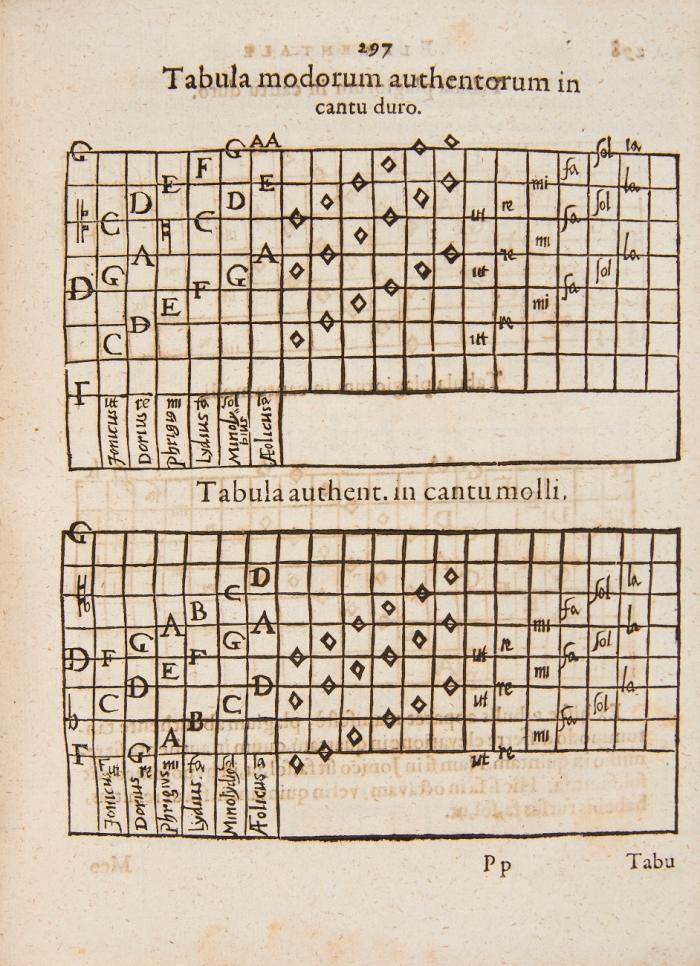 297
Tabula modorum authentorum in
cantu duro.
G G AA
F la
E E mi fa sol
D D re sol la
C C ut fa
mi
A A re la
D G G ut sol
F fa
E mi
D re
C ut
Γ
Jonicus ut Dorius re Phrigius mi Lydius fa Mixolydius sol Æolicus la
Tabula authent. in cantu molli.
G
D la
C sol
B fa
A A mi la
G G re sol
D F F ut fa
E mi
D D re la
C C ut sol
B fa
A mi
F G re
ut
Jonicus ut Dorius re Phrigius mi Lydius fa Mixolydius sol Æolicus la
Pp Tabu